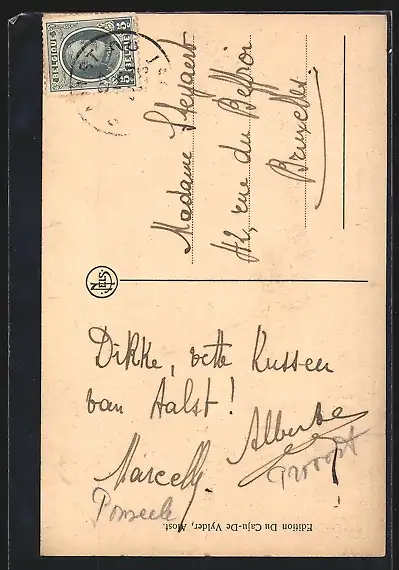 BELGIQUE 5
5 BELGIE
Madame Steyaert
42, rue du Beffroi
Bruxelles
NELS
Dikke, vette Kussen
van Aalst!
Alberte
Marcelly
Edition Du Caju-De Vylder, Alost.